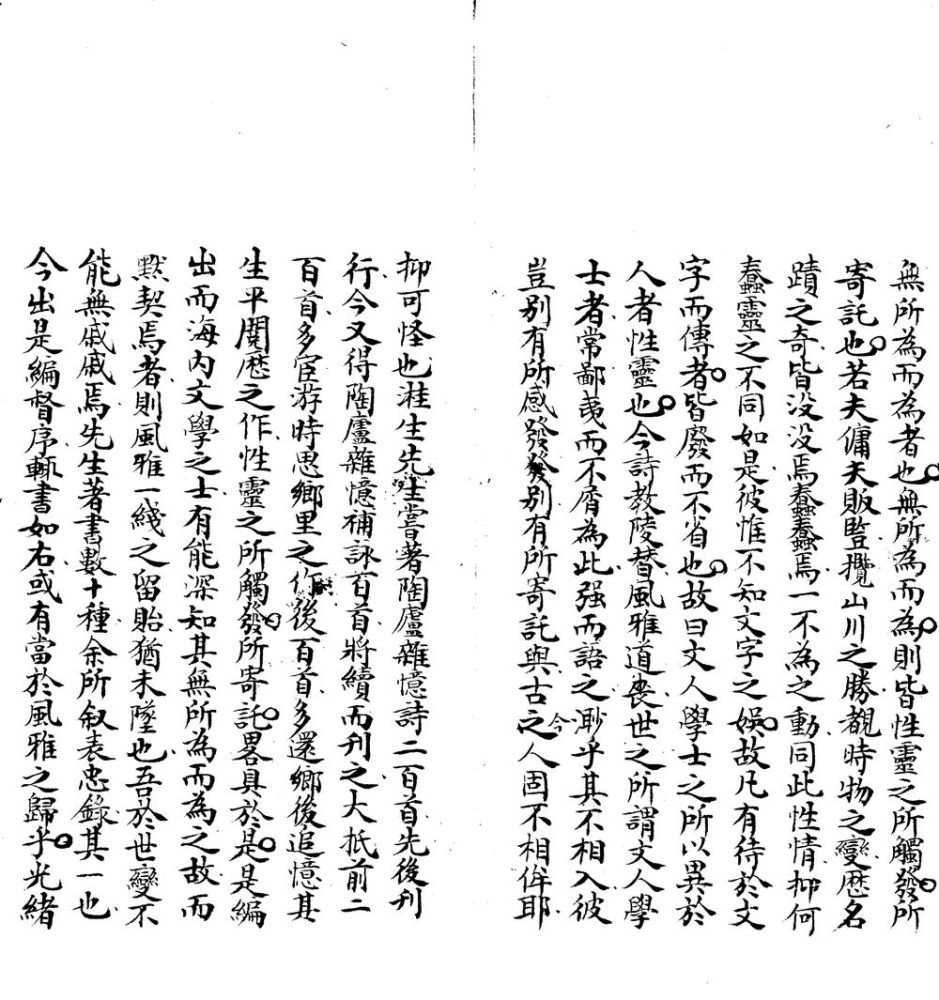 無所為而為者也無所為而為則皆性靈之所觸發所
寄託也若夫傭夫販豎攬山川之勝覩時物之變歷名
蹟之奇皆没没焉蠢蠢焉一不為之動同此性情抑何
蠢靈之不同如是彼惟不知文字之娛故凡有待於文
字而傳者皆廢而不省也故曰文人學士之所以異於
人者性靈也今詩教陵替風雅道喪世之所謂文人學
士者常鄙夷而不屑為此强而語之渺乎其不相入彼
豈別有所感發發別有所寄託與古之今人固不相侔耶
抑可怪也漄生先生嘗著陶廬雜憶詩二百首先後刊
行今又得陶廬雜憶補詠百首將續而刊之大抵前二
百首多宦游時思鄉里之作後百首多還鄉後追憶其
生平閱歷之作性靈之所觸發所寄託畧具於是是編
出而海內文學之士有能深知其無所為而為之故而
默契焉者則風雅一綫之留貽猶未墜也吾於世變不
能無戚戚焉先生著書數十種余所叙表忠錄其一也
今出是編督序輙書如右或有當於風雅之歸乎光緒